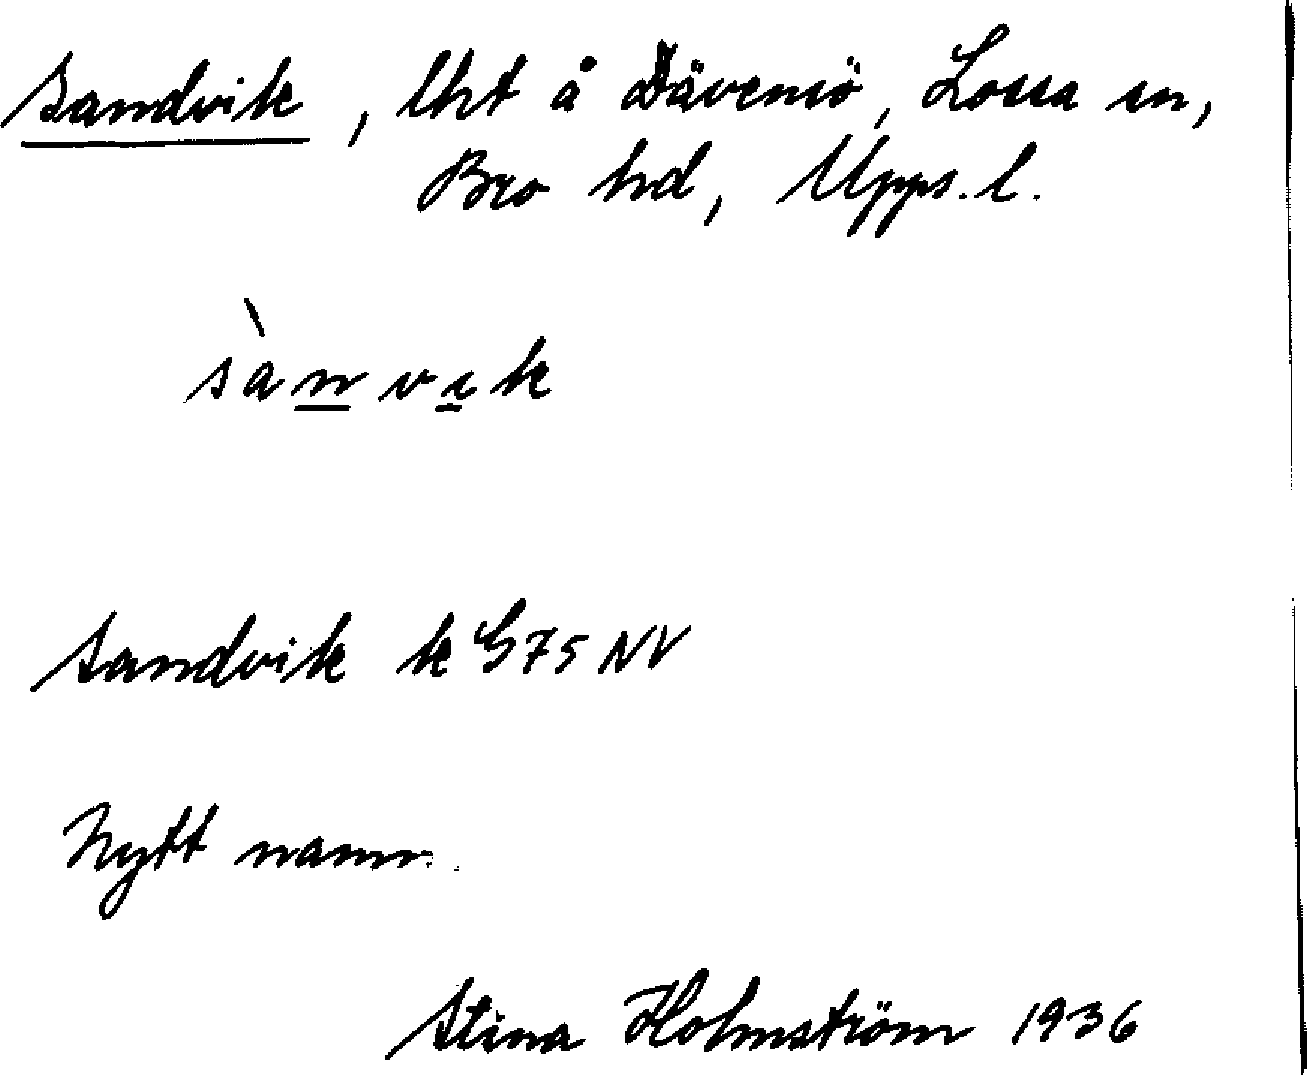 Sandvik, lht å Dävensö, Lossa sn,
Bro hd, Upps. l.
sànvik
Sandvik k G75 NV
Nytt namn.
Stina Holmström 1936